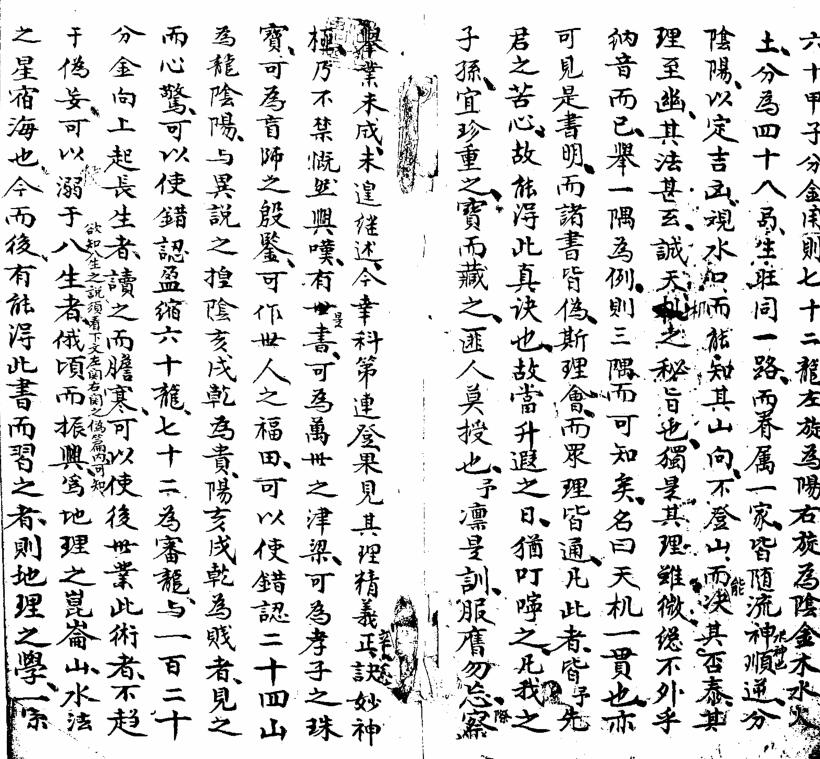 六十甲子分金用則七十二龍左旋為陽右旋為陰金木水火
土分為四十八局生旺同一路而眷属一家皆随流神順逆分
陰陽以定吉凶視水口而能知其山向不登山而能决其否泰其
理至幽其法甚玄誠天机之秘旨也獨是其理雖微総不外乎
纳音而已舉一隅為例則三隅而可知矣名曰天机一貫也亦
可見是書明而諸書皆偽斯理會而眾理皆通凡此者皆予先
君之苦心故能淂此真诀也故當升遐之日猶叮嚀之凡我之
子孫宜珍重之寶而藏之匪人莫授也予凛是訓服膺勿忘察
舉業未成未遑継述今幸科第連登果見其理精義正訣妙神
極乃不禁慨然興嘆有世書可為萬世之津梁可為孝子之珠
寶可為盲師之殷鑒可作世人之福田可以使錯認二十四山
為龍陰陽与異説之指陰亥戌乾為貴陽亥戌乾為賎者見之
而心驚可以使錯認盈缩六十龍七十二為審龍与一百二十
分金向上起長生者讀之而膽寒可以使後世業此術者不趋
于偽妄可以溺于八生者俄頃而振興爲地理之崑崙山水法
欲知八生之説須看下文左関右関之偽篇内可知
之星宿海也今而後有能淂此書而習之者則地理之學一宗